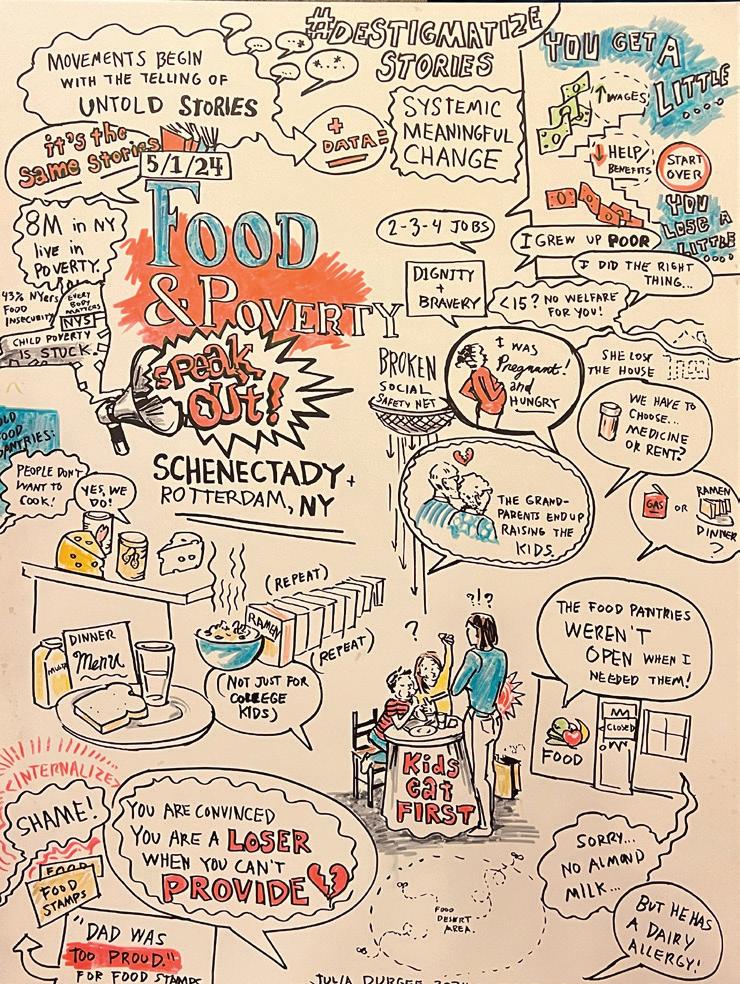 #DESTIGMATIZE
STORIES
MOVEMENTS BEGIN
WITH THE TELLING OF
UNTOLD STORIES
+
DATA=
SYSTEMIC
MEANINGFUL
CHANGE
YOU GET A
LITTLE
....
↑ WAGES
↓ HELP/
BENEFITS
START
OVER
YOU
LOSE A
LITTLE
....
it's the
Same Stories
5/1/24
FOOD
& POVERTY
Speak
Out!
SCHENECTADY +
ROTTERDAM, NY
8M in NY
live in
POVERTY.
43% NYers
FOOD
INSECURITY
EVERY
BODY
MATTERS
NYS
CHILD POVERTY
IS STUCK.
2-3-4 JOBS
I GREW UP POOR
I DID THE RIGHT
THING...
DIGNITY
+
BRAVERY
<15? NO WELFARE
FOR YOU!
BROKEN
SOCIAL
SAFETY NET
I WAS
Pregnant!
and
HUNGRY
SHE LOST
THE HOUSE
WE HAVE TO
CHOOSE...
MEDICINE
OR RENT?
GAS OR
RAMEN
DINNER
?
THE GRAND-
PARENTS END UP
RAISING THE
KIDS.
PEOPLE DON'T
WANT TO
COOK!
YES, WE
DO!
(REPEAT)
RAMEN
(REPEAT)
(NOT JUST FOR
COLLEGE
KIDS)
DINNER
Menu
?
?!?
Kids
eat
FIRST
THE FOOD PANTRIES
WEREN'T
OPEN WHEN I
NEEDED THEM!
CLOSED
FOOD
<INTERNALIZE>
SHAME!
FOOD
FOOD
STAMPS
YOU ARE CONVINCED
YOU ARE A LOSER
WHEN YOU CAN'T
PROVIDE
"DAD WAS
TOO PROUD."
FOR FOOD STAMPS
FOOD
DESERT
AREA.
SORRY...
NO ALMOND
MILK...
BUT HE HAS
A DAIRY
ALLERGY!